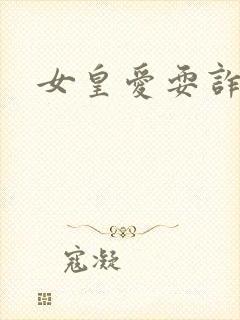 女皇愛耍詐
寇凝